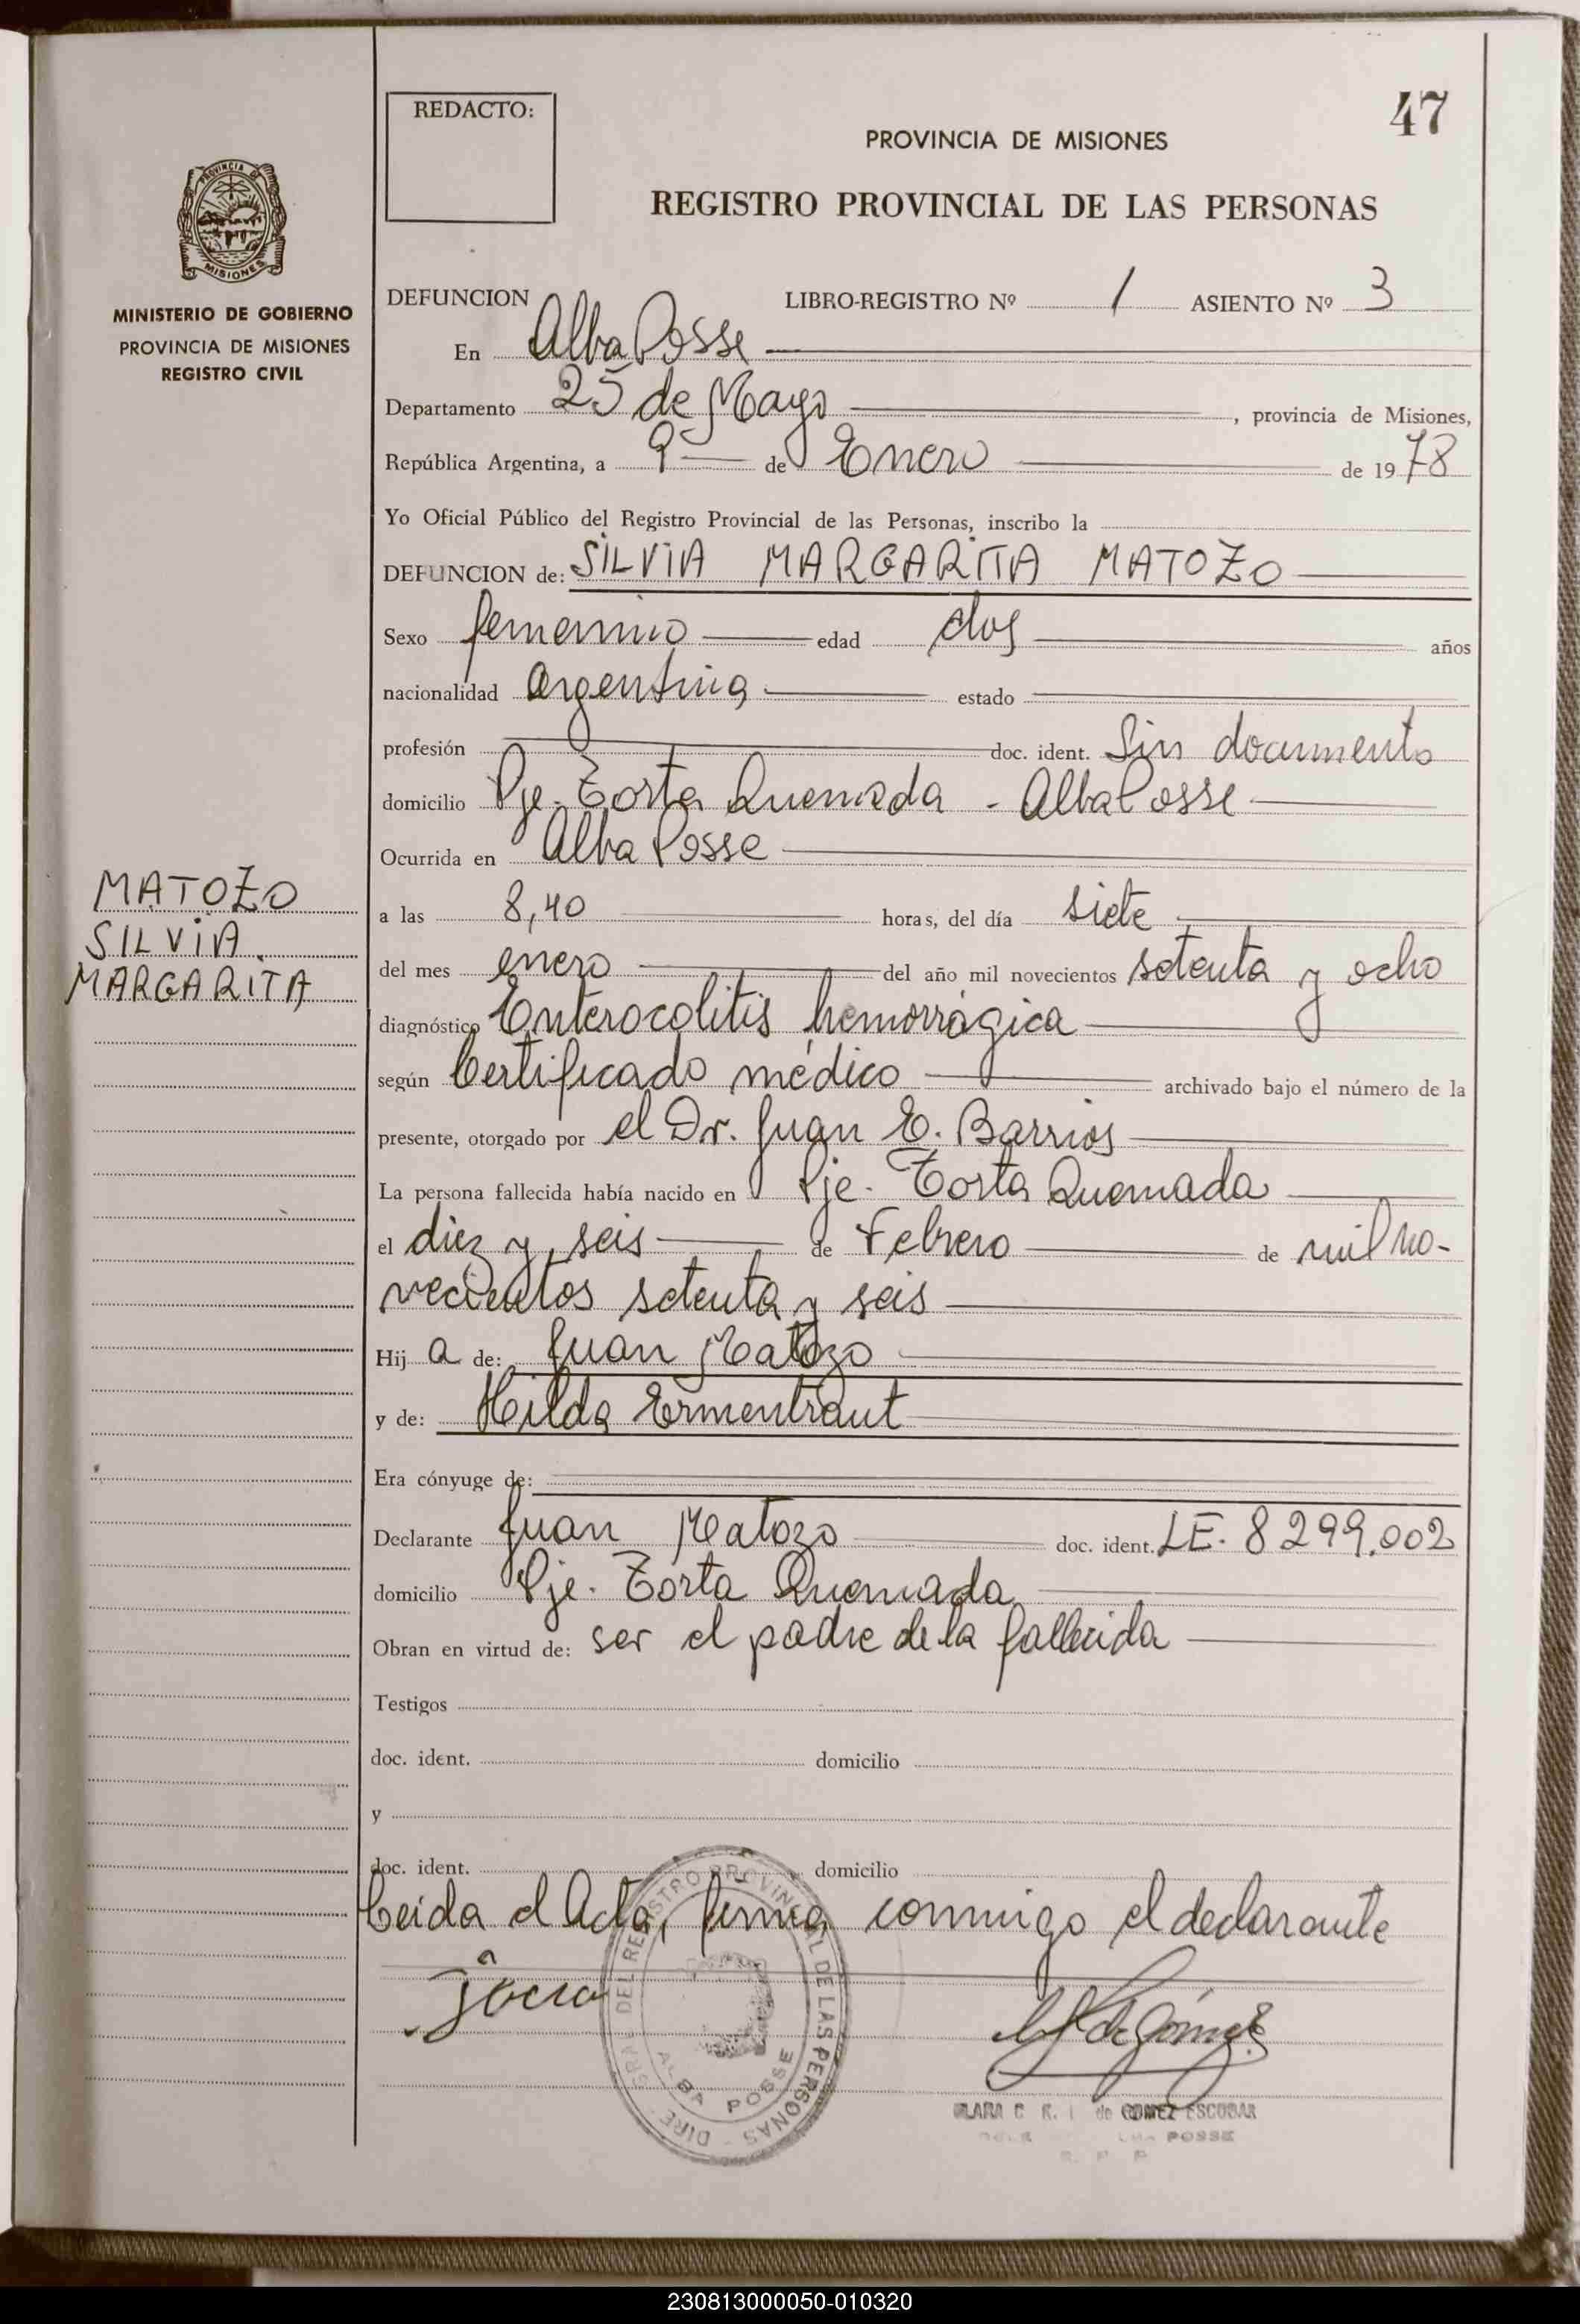 47
REDACTO:
PROVINCIA DE MISIONES
REGISTRO PROVINCIAL DE LAS PERSONAS
PROVINCIA DE
MISIONES
MINISTERIO DE GOBIERNO
PROVINCIA DE MISIONES
REGISTRO CIVIL
DEFUNCION LIBRO-REGISTRO Nº 1 ASIENTO Nº 3
En Alba Posse
Departamento 25 de Mayo, provincia de Misiones,
República Argentina, a 9 de Enero de 1978
Yo Oficial Público del Registro Provincial de las Personas, inscribo la
DEFUNCION de: SILVIA MARGARITA MATOZO
Sexo femenino edad dos años
nacionalidad argentina estado
profesión doc. ident. Sin documento
domicilio Pje. Torta Quemada - Alba Posse
Ocurrida en Alba Posse
MATOZO
SILVIA
MARGARITA
a las 8,40 horas, del día siete
del mes enero del año mil novecientos setenta y ocho
diagnóstico Enterocolitis hemorrágica
según Certificado médico archivado bajo el número de la
presente, otorgado por el Dr. Juan E. Barrios
La persona fallecida había nacido en Pje. Torta Quemada
el diez y seis de Febrero de mil no-
vecientos setenta y seis
Hij a de: Juan Matozo
y de: Hilda Ermentraut
Era cónyuge de:
Declarante Juan Matozo doc. ident. LE. 8299.002
domicilio Pje. Torta Quemada
Obran en virtud de: ser el padre de la fallecida
Testigos
doc. ident. domicilio
y
doc. ident. domicilio
Leida el Acta, firma conmigo el declarante
DEL REGISTRO PROVINCIAL DE LAS PERSONAS
ALBA POSSE
CLARA C R. de GOMEZ ESCOBAR
POSSE
230813000050-010320